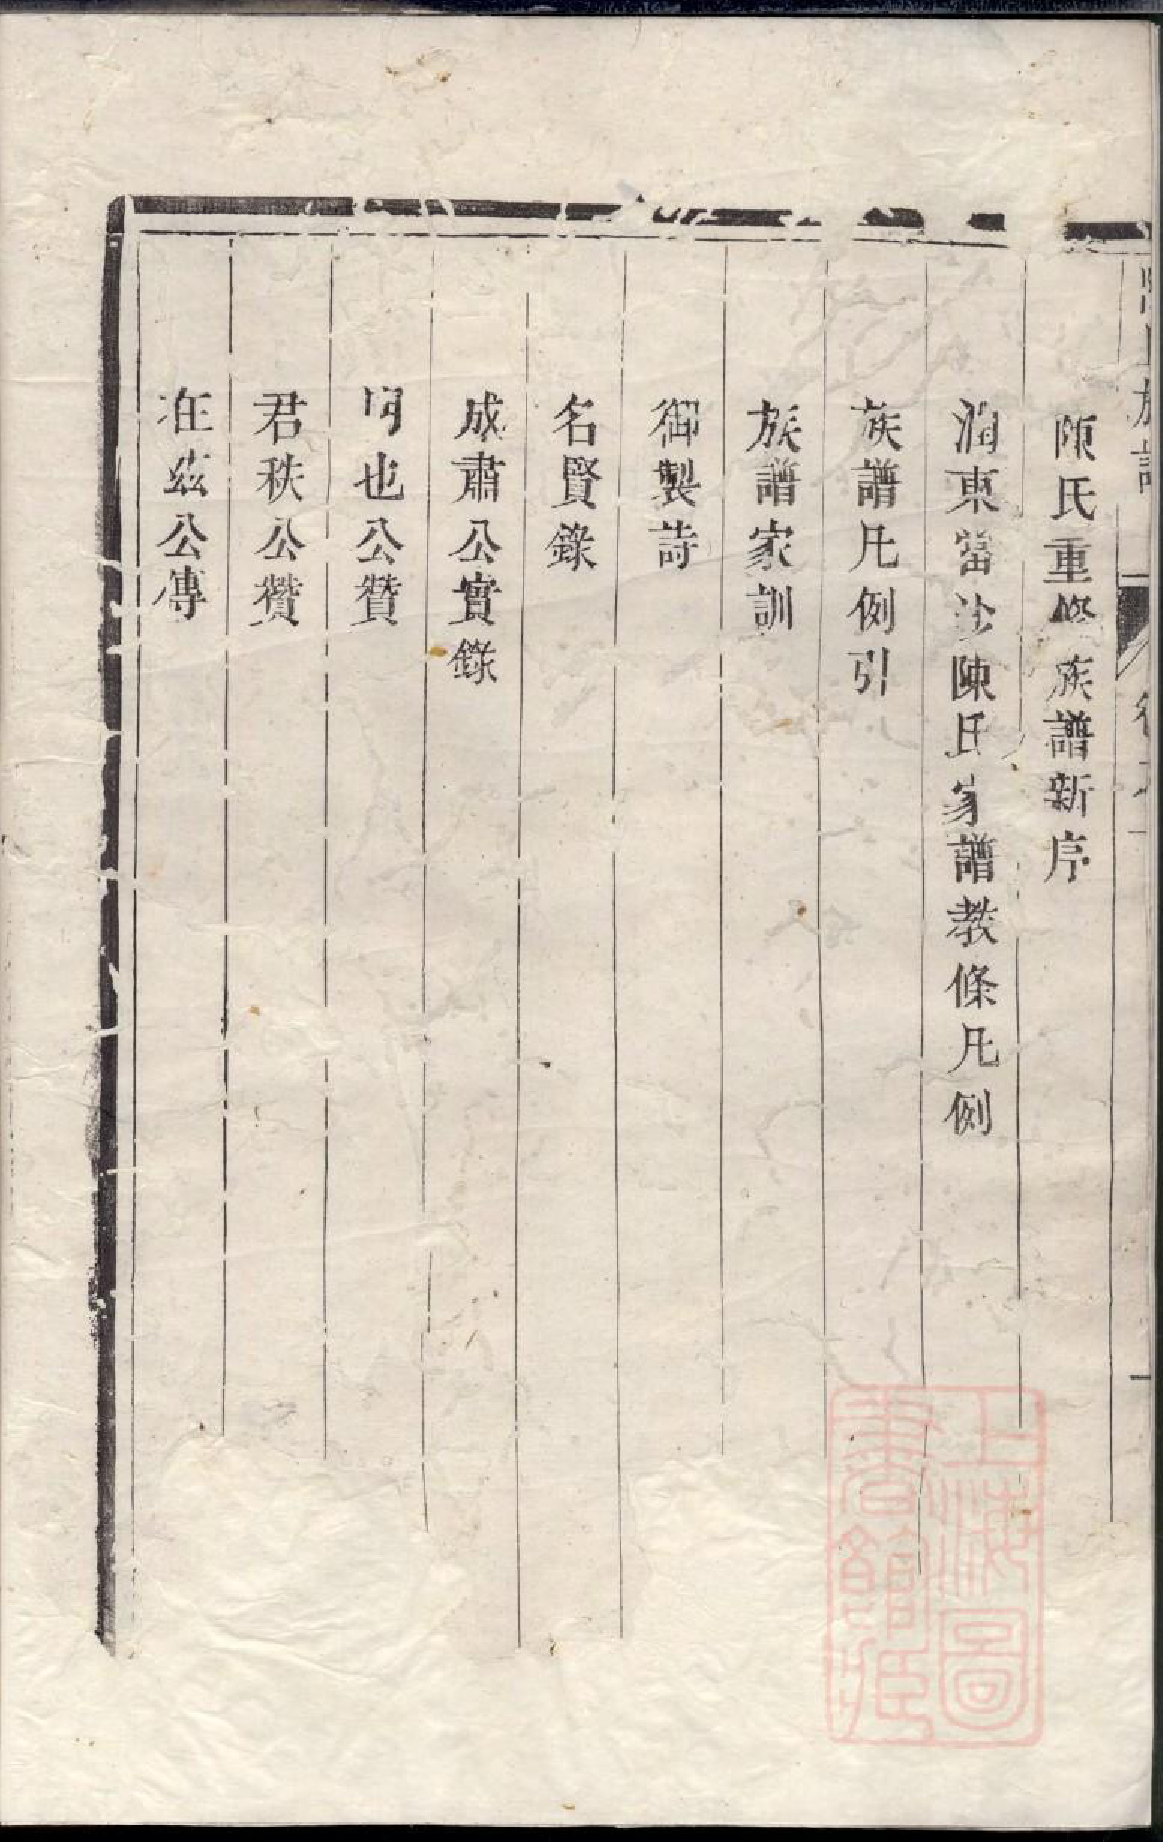 陳氏重修族譜新序
潤東當沙陳氏家譜教條凡例
族譜凡例引
族譜家訓
御製詩
名賢錄
成肅公實錄
可也公贊
君秩公贊
在茲公傳
族譜
上海圖書館藏